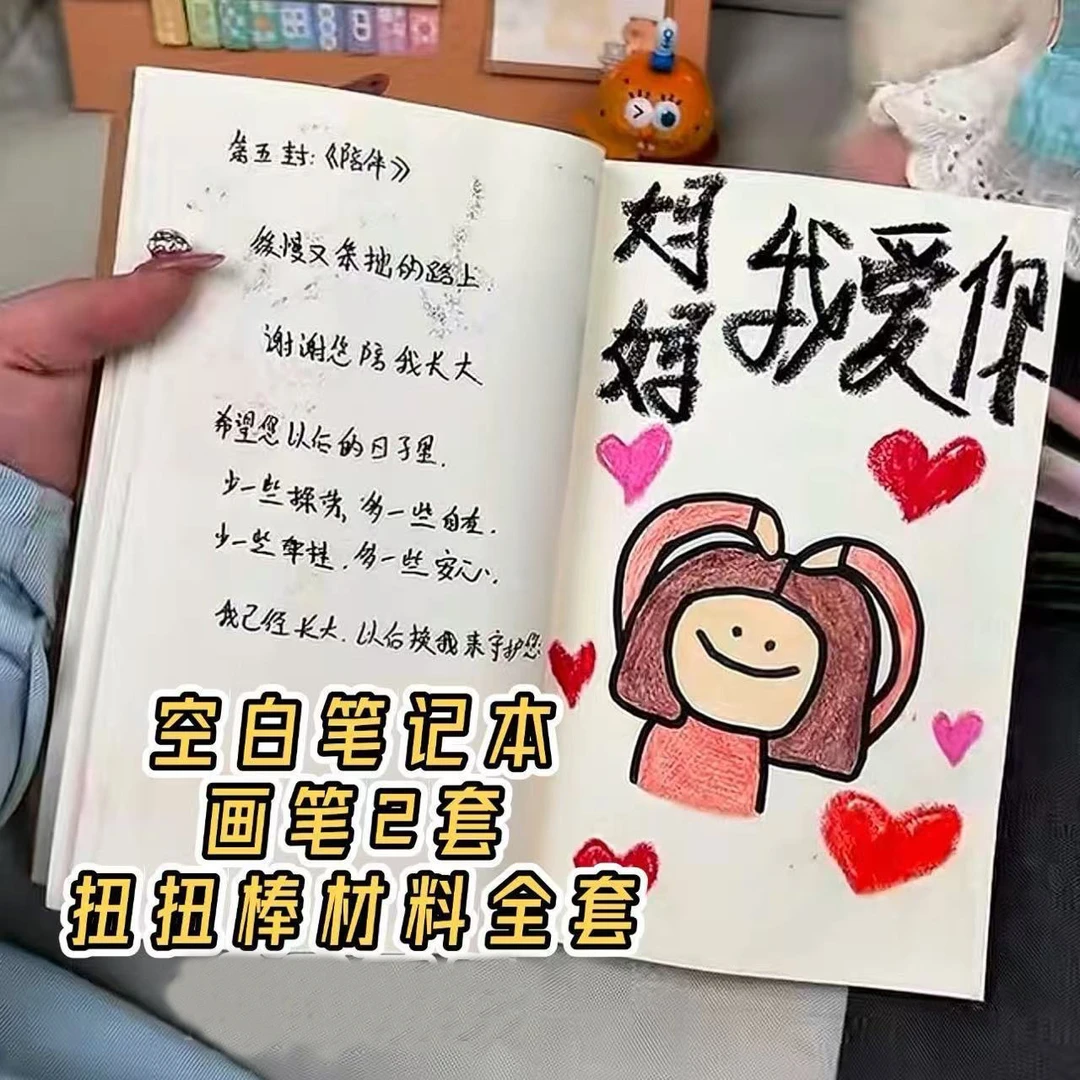 第五封:《陪伴》
缓慢又笨拙的路上.
谢谢您陪我长大
希望您以后的日子里.
少一些操劳、多一些自在.
少一些牵挂.多一些安心.
我已经长大.以后换我来守护您.
妈妈
我爱你
空白笔记本
画笔2套
扭扭棒材料全套